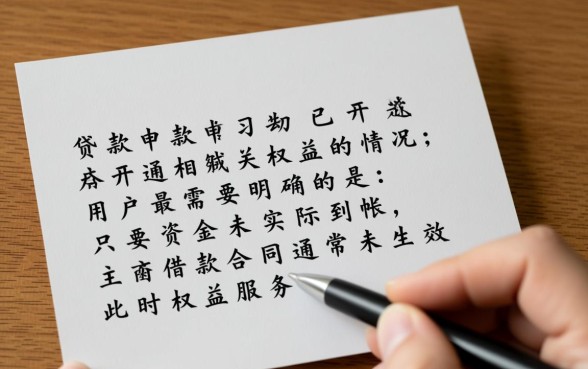 贷款申款申习 已开
开通相关权益的情况；
用户最需要明确的是：
只要资金未实际到帐，
主借款合同通常未生效
此时权益服务